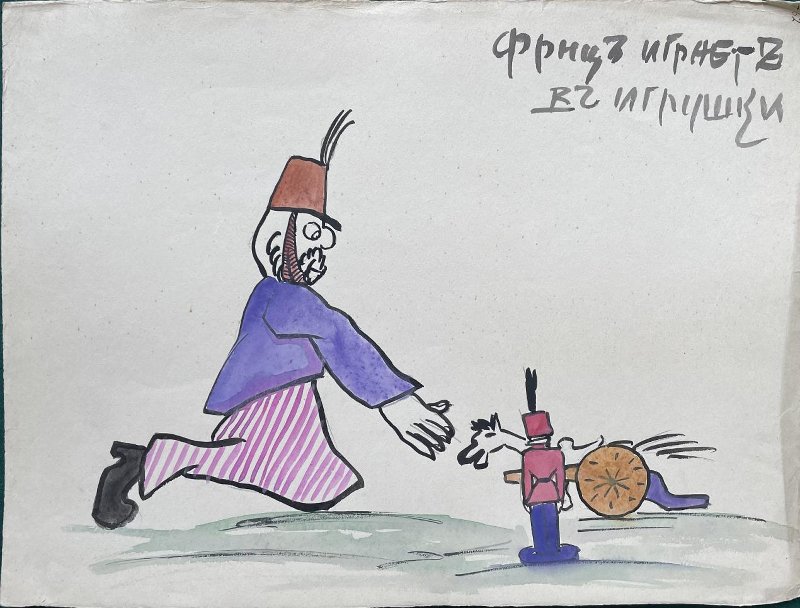 Фрицъ играетъ
въ игрушки